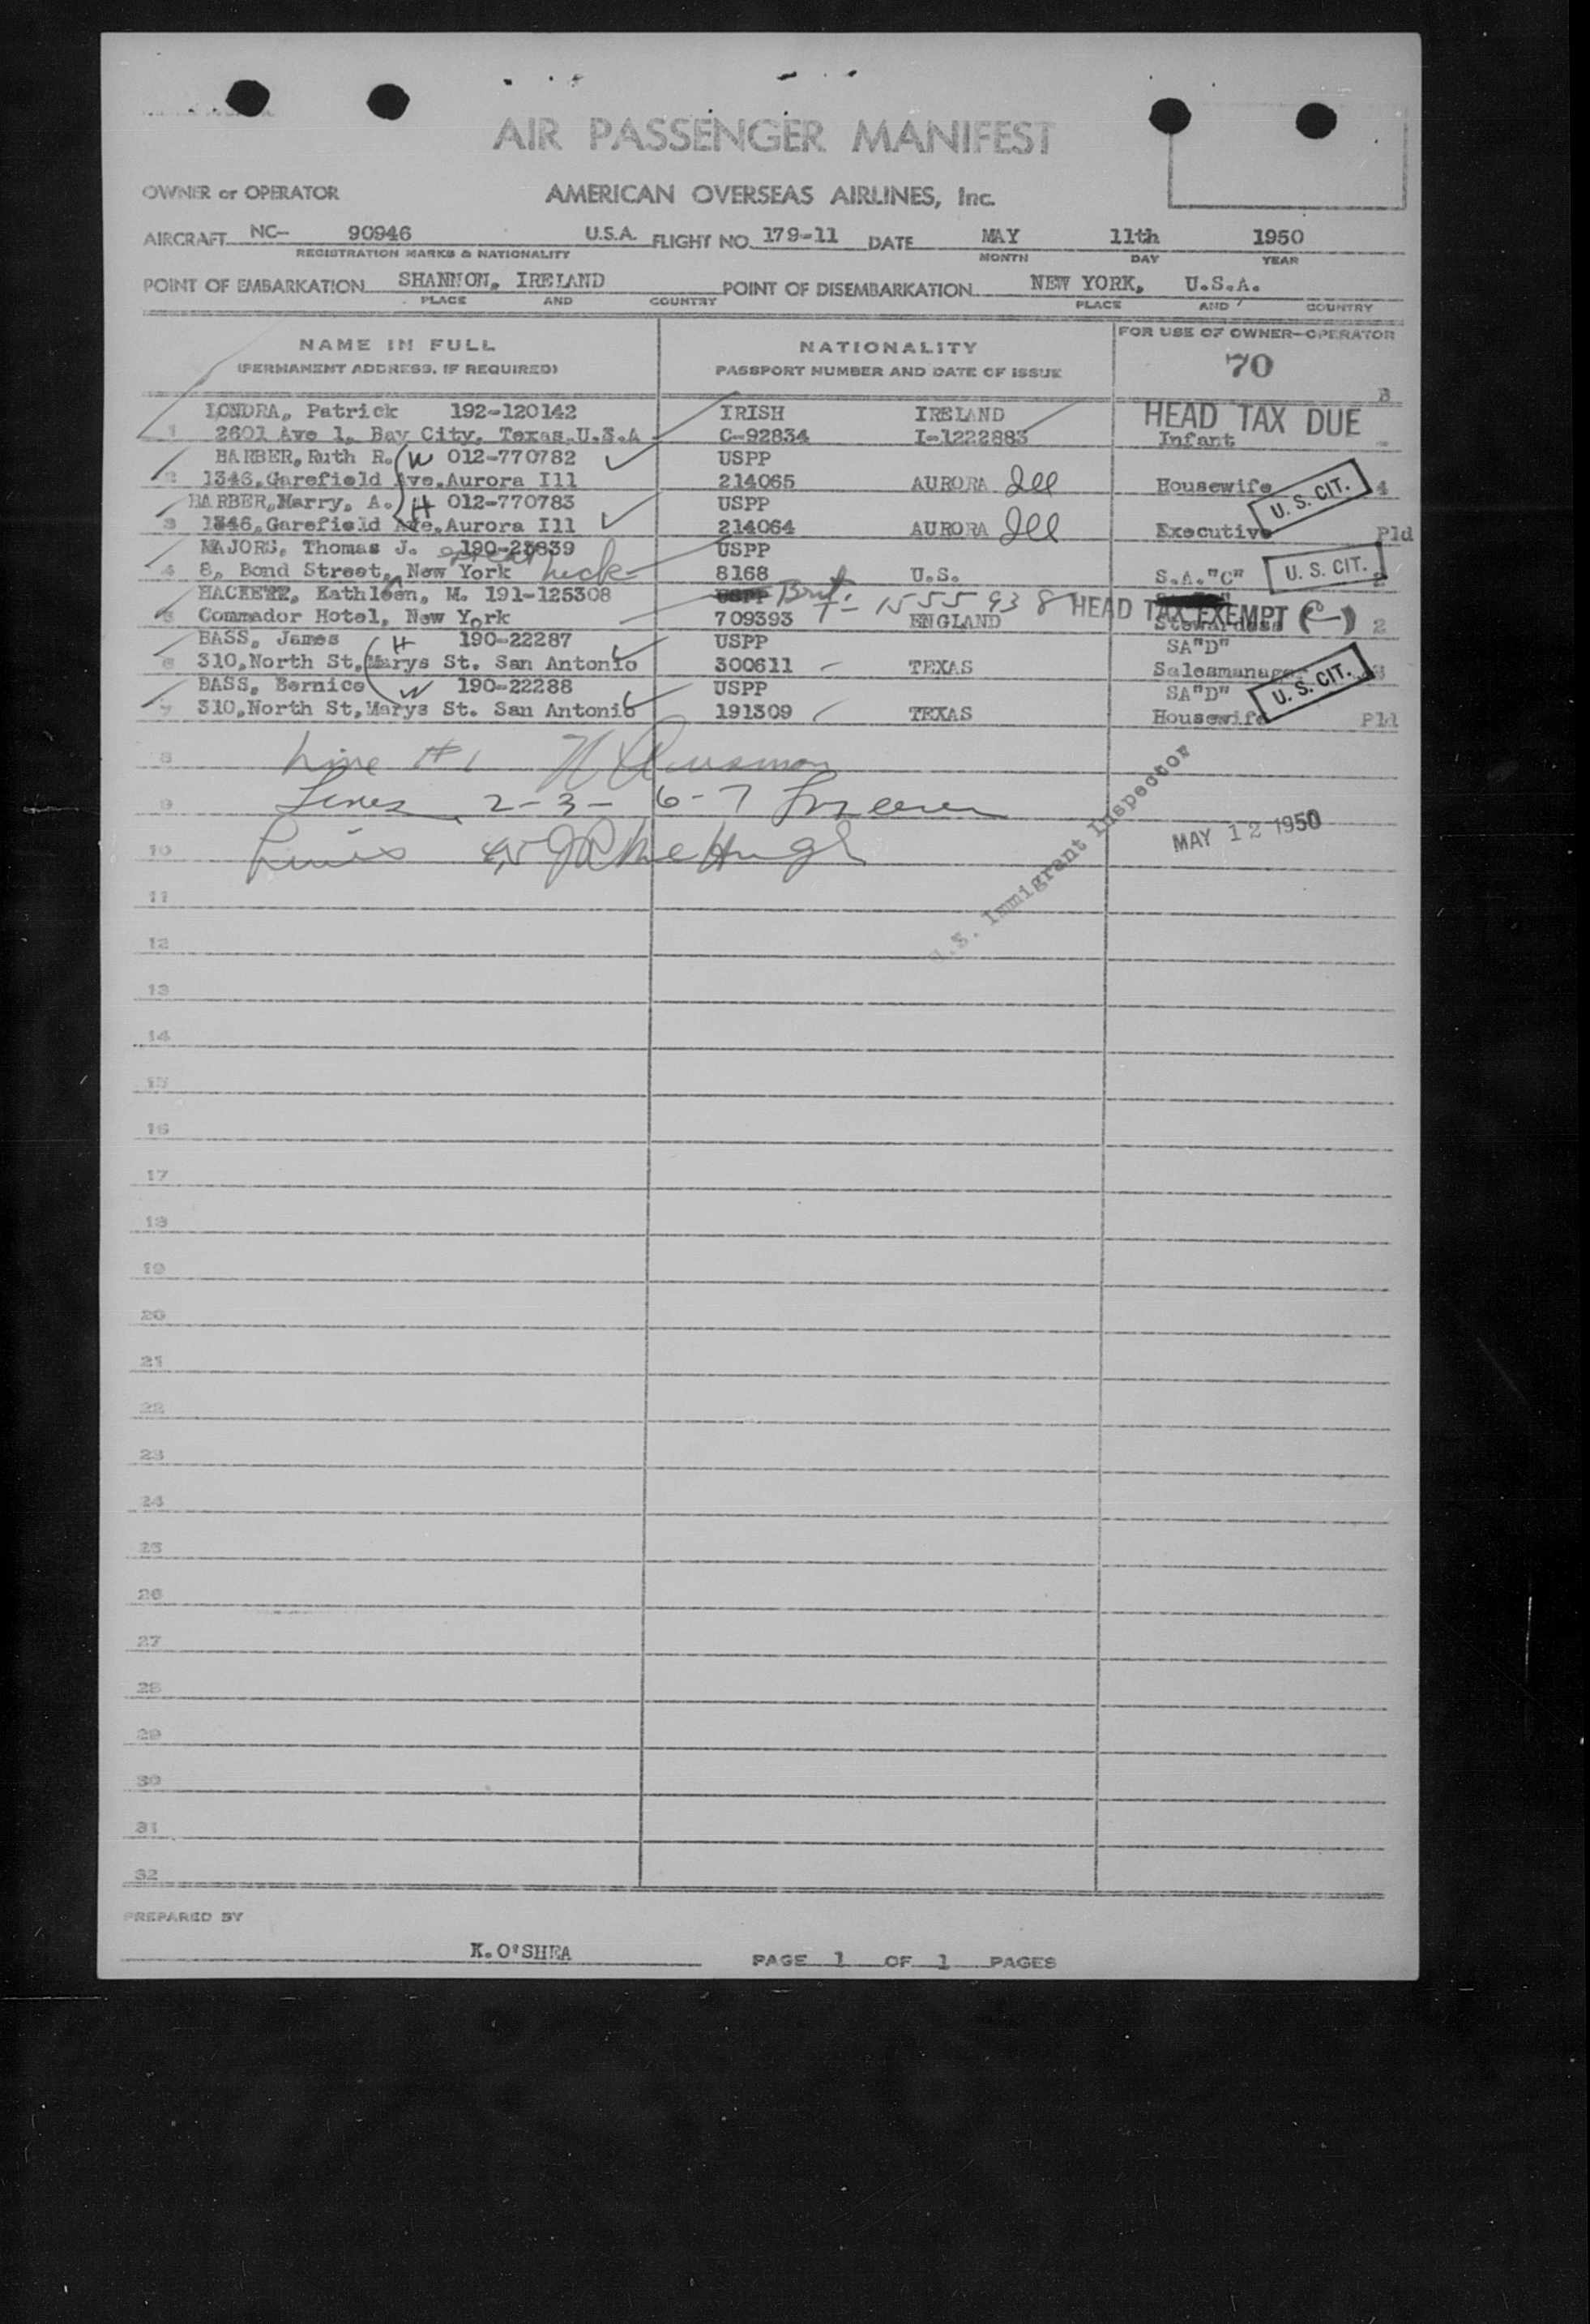 AIR PASSENGER MANIFEST
OWNER or OPERATOR AMERICAN OVERSEAS AIRLINES, Inc.
AIRCRAFT NC- 90946 U.S.A. FLIGHT NO. 179-11 DATE MAY 11th 1950
REGISTRATION MARKS & NATIONALITY MONTH DAY YEAR
POINT OF EMBARKATION SHANNON, IRELAND POINT OF DISEMBARKATION NEW YORK, U.S.A.
PLACE AND COUNTRY PLACE AND COUNTRY
NAME IN FULL NATIONALITY FOR USE OF OWNER-OPERATOR
(PERMANENT ADDRESS, IF REQUIRED) PASSPORT NUMBER AND DATE OF ISSUE 70
LONDRA, Patrick 192-120142 IRISH IRELAND HEAD TAX DUE
1 2601 Ave 1, Bay City, Texas,U.S.A C-92834 I-1222883 Infant
BARBER, Ruth R. W 012-770782 USPP
2 1346,Garefield Ave.Aurora Ill 214065 AURORA Ill Housewife U. S. CIT. 4
BARBER,Harry, A. H 012-770783 USPP
3 1346,Garefield Ave.Aurora Ill 214064 AURORA Ill Executive Pld
MAJORS, Thomas J. 190-23839 USPP
4 8, Bond Street, New York Great Neck 8168 U.S. S.A."C" U. S. CIT.
HACKETT, Kathleen, M. 191-125308 USPP Brit. T-1555938 HEAD TAX EXEMPT
5 Commador Hotel, New York 709393 ENGLAND Stewardess 2
BASS, James H 190-22287 USPP SA"D"
6 310,North St,Marys St. San Antonio 300611 TEXAS Salesmanager 3
BASS, Bernice W 190-22288 USPP SA"D" U. S. CIT.
7 310,North St,Marys St. San Antonio 191309 TEXAS Housewife Pll
8 Line #1
9 Lines 2-3-6-7
10 Lines 4,5 McHugh
U.S. Immigrant Inspector
MAY 12 1950
11
12
13
14
15
16
17
18
19
20
21
22
23
24
25
26
27
28
29
30
31
32
PREPARED BY
K.O'SHEA PAGE 1 OF 1 PAGES